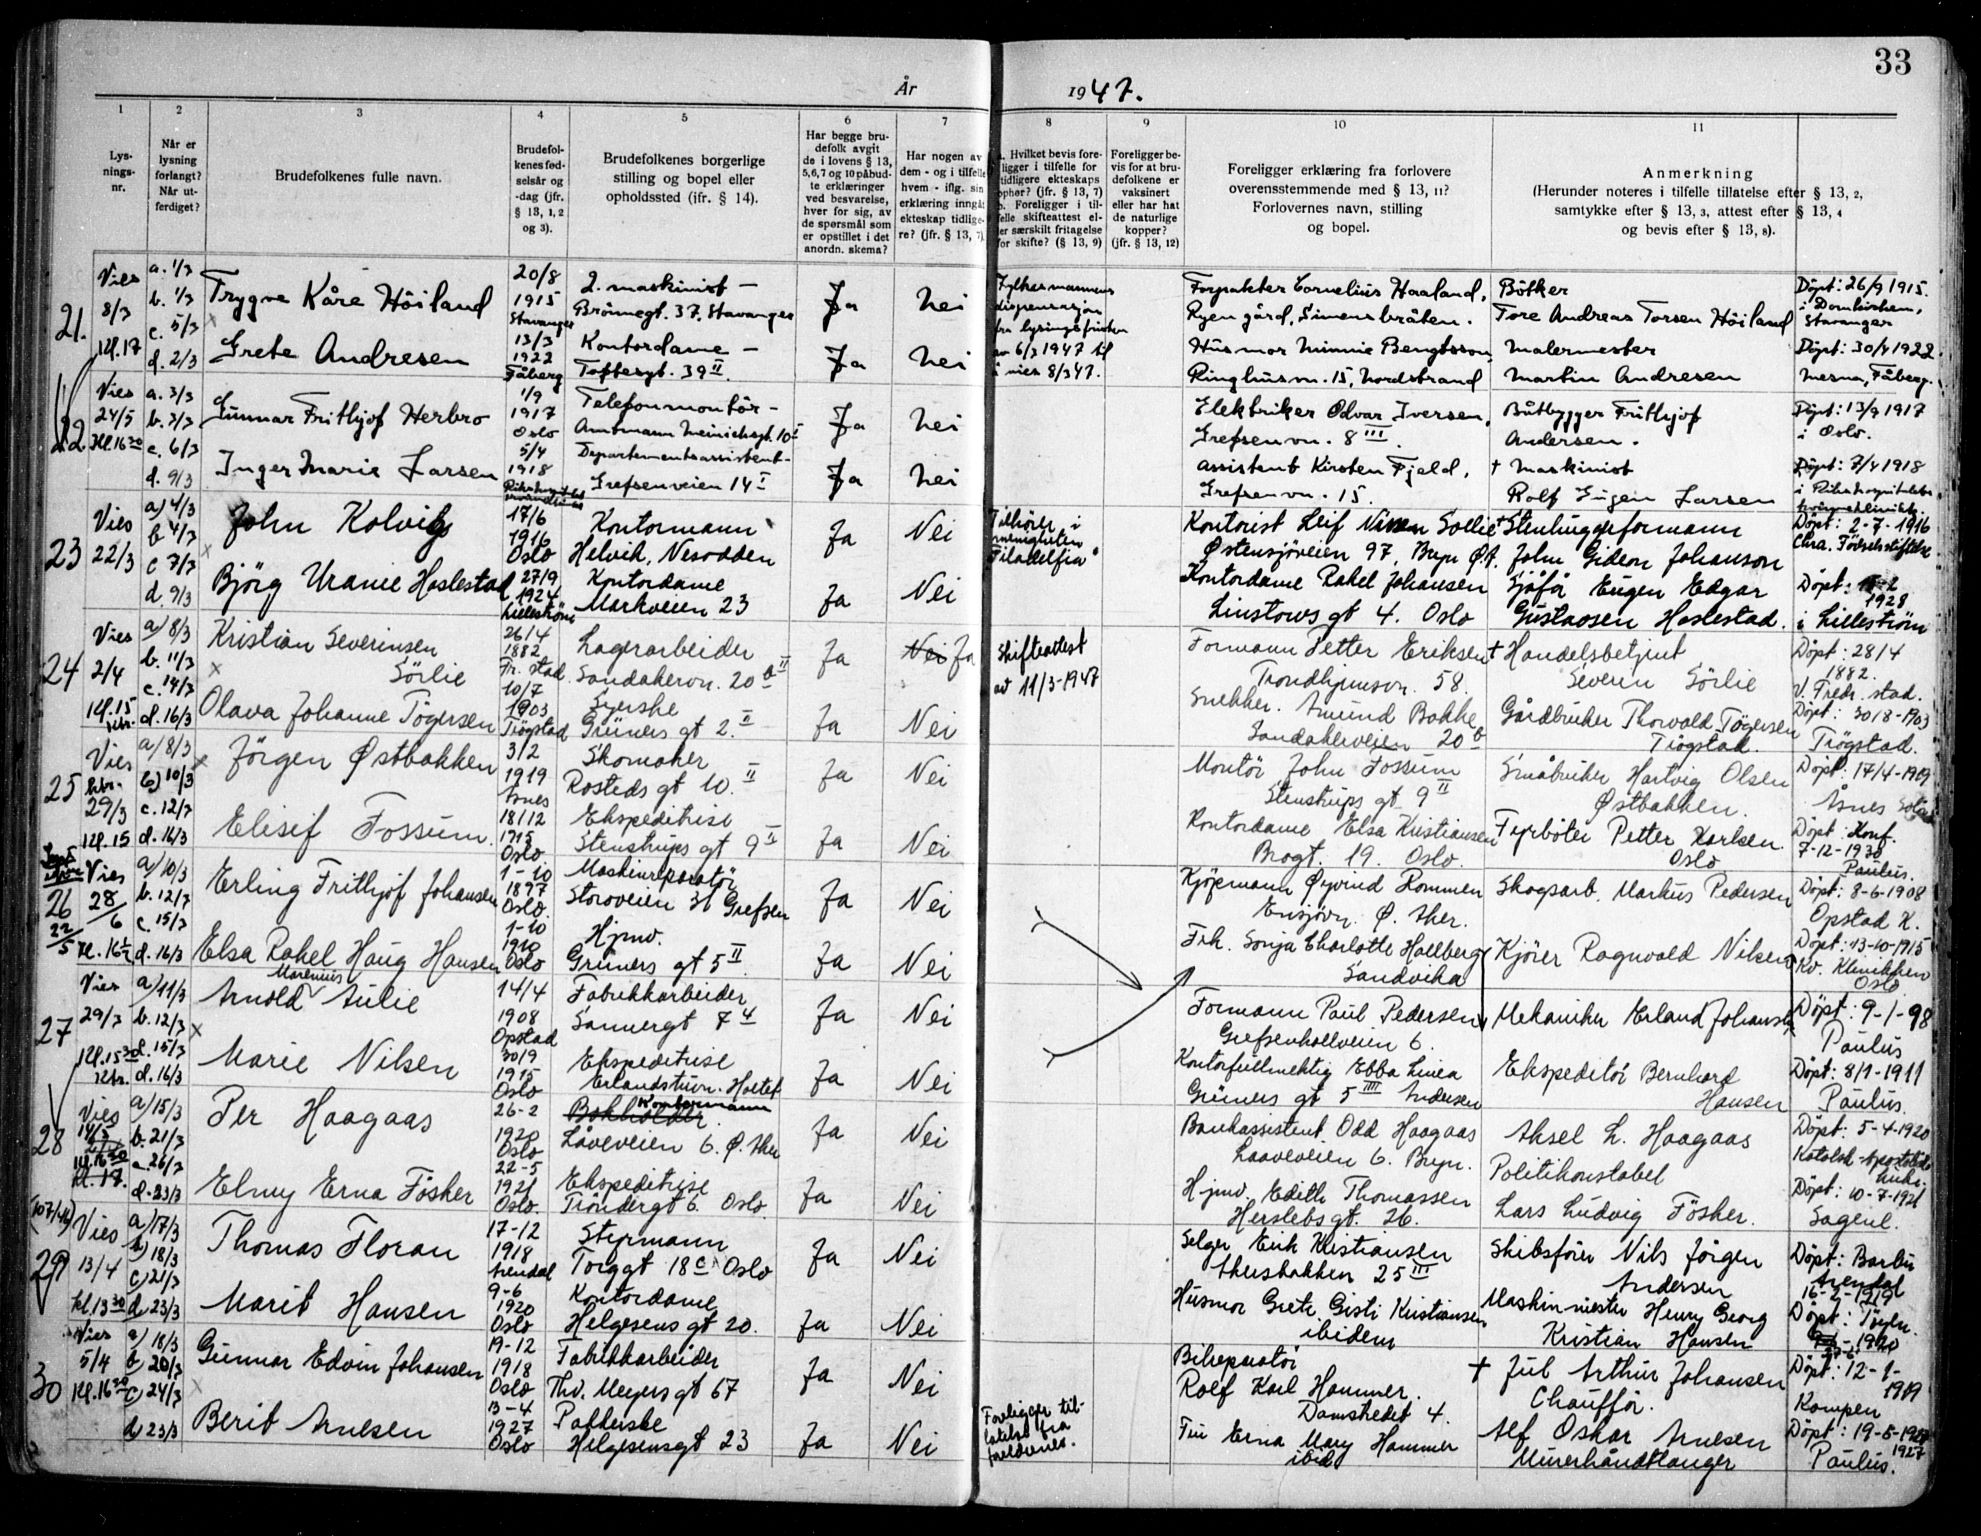 33
År 1947.
1
2
3
4
5
6
7
8
9
10
11
Lys-
nings-
nr.
Når er
lysning
forlangt?
Når ut-
ferdiget?
Brudefolkenes fulle navn.
Brudefol-
kenes fød-
selsår og
-dag (jfr.
§ 13, 1, 2
og 3).
Brudefolkenes borgerlige
stilling og bopel eller
opholdssted (jfr. § 14).
Har begge bru-
defolk avgit
de i lovens § 13,
5, 6, 7 og 10 påbud-
te erklæringer
ved besvarelse,
hver for sig, av
de spørsmål som
er opstillet i det
anordn. skema?
Har nogen av
dem - og i tilfelle
hvem - iflg. sin
erklæring inngåt
ekteskap tidlige-
re? (jfr. § 13, 7)
a. Hvilket bevis fore-
ligger i tilfelle for
tidligere ekteskaps
ophør? (jfr. § 13, 7)
b. Foreligger i til-
felle skifteattest el-
ler særskilt fritagelse
for skifte? (§ 13, 9)
Foreligger be-
vis for at bru-
defolkene er
vaksinert
eller har hat
de naturlige
kopper?
(jfr. § 13, 12)
Foreligger erklæring fra forlovere
overensstemmende med § 13, 11?
Forlovernes navn, stilling
og bopel.
Anmerkning
(Herunder noteres i tilfelle tillatelse efter § 13, 2,
samtykke efter § 13, 3, attest efter § 13, 4
og bevis efter § 13, 8).
21.
Vies
8/3
kl. 17
a. 1/3
b. 1/3
c. 5/3
d. 2/3
Trygve Kåre Höiland
20/8
1915
Stavanger
2. maskinist -
Brönnegt. 37, Stavanger
Ja
Nei
Fylkesmannens
dispensasjon
fra lysingsfristen
av 6/3 1947 til
å vies 8/3 47.
Forpakter Cornelius Haaland,
Ryen gård, Simensbråten.
Bötker
Tore Andreas Torsen Höiland
Döpt: 26/9 1915.
i Domkirken,
Stavanger
Grete Andresen
13/3
1922
Fåberg
Kontordame -
Toftesgt. 39 II.
Ja
Nei
Husmor Minnie Bengtsson,
Ringhusvn. 15, Nordstrand
Malermester
Martin Andresen
Döpt: 30/4 1922.
Mesna, Fåberg.
22
Vies
24/5
Kl. 16 30
a. 3/3
b. 3/3
c. 6/3
d. 9/3
Gunnar Frithjof Herbro
1/9
1917
Oslo
Telefonmontör -
Amtmann Meinichsgt. 10 I
Ja
Nei
Elektriker Odvar Iversen,
Grefsenvn. 8 III.
Båtbygger Frithjof
Andersen.
Döpt: 13/9 1917
i Oslo.
Inger Marie Larsen
5/4
1918
Departementsassistent -
Grefsenveien 14 I
Ja
Nei
Assistent Kirsten Fjeld,
Grefsenvn. 15.
+ Maskinist
Rolf Eugen Larsen
Döpt: 7/4 1918
23
Vies
22/3
a) 4/3
b 4/3
c 7/3
d. 9/3
John Kolvig
17/6
1916
Oslo
Kontormann
Helvik, Nesodden
Ja
Nei
Tilhörer i
menigheten
Filadelfia"
Kontorist Leif Nissen Sollie
Östensjöveien 97, Bryn Ö.A.
+ Stenhuggerformann
John Gideon Johanson
Döpt: 2-7-1916
Chra. Födselsstiftelse
Björg Uranie Haslestad
27/9
1924
Lilleström
Kontordame
Markveien 23
Ja
Nei
Kontordame Rakel Johansen
Linstows gt 4. Oslo
Sjåför Eugen Edgar
Gustavsen Haslestad.
Döpt:
1928
i Lilleström
24
Vies
2/4
kl. 15
a) 8/3
b. 11/3
c. 14/3
d. 16/3
Kristian Severinsen
Sörlie
26/4
1882
Fr. stad
Lagerarbeider
Sandakervn. 20 b II
Ja
Nei Ja
Skifteattest
av 11/3-1947
Formann Petter Eriksen
Trondhjemsvn. 58.
+ Handelsbetjent
Severin Sörlie
Döpt: 28/4
1882.
V. Fredr. stad.
Olava Johanne Tögersen
10/7
1903
Trögstad
Syerske
Grüners gt 2. II
Ja
Nei
Snekker. Amund Bakke
Sandakerveien 20 b
Gårdbruker Thorvald Tögersen
Trögstad.
Döpt: 30/8-1903
Trögstad.
25
Vies
29/3
kl. 15
a/ 8/3
b) 10/3
c. 12/3
d. 16/3
Jörgen Østbakken
3/2
1919
Åsnes
Skomaker
Rosteds gt 10. II
Ja
Nei
Montör John Fossum
Stenstrups gt 9 II
Småbruker Hartvig Olsen
Østbakken.
Döpt: 17/4-1919
Åsnes Solør
Elisif Fossum
18/12
1915
Oslo
Ekspeditrise
Stenstrups gt 9 II
Ja
Nei
Kontordame Elsa Kristiansen
Brogt. 19. Oslo.
Fyrböter Petter Karlsen
Oslo
Döpt: Konf.
7-12-1930
Paulus.
26
22/5
Vies
28/6
Kl. 16 1/2
a) 10/3
b. 12/3
c. 15/3
d. 16/3
Erling Frithjof Johansen
1-10
1897
Oslo.
Maskinreparatör
Storoveien 31 Grefsen
Ja
Nei
Kjöpmann Öyvind Rommen
Ensjövn. Ö. Aker.
Skogsarb. Markus Pedersen
Döpt: 8-6-1908
Opstad K.
Elsa Rakel Haug Hansen
1-10
1910
Oslo
Hjmv.
Grüners gt 5 II
Ja
Nei
Frk. Sonja Charlotte Hallberg
Sandvika
Kjörer Ragnvald Nilsen
Döpt: 13-10-1915
Kv. Klinikken
Oslo
27
Vies
29/3
Kl. 15 30
a) 11/3
b. 12/3
c. 15/3
d. 16/3
Arnold Marenius Aulie
14/4
1908
Opstad
Fabrikkarbeider
Sannergt 7 4
Ja
Nei
Formann Paul Pedersen
Grefsenkollveien 6.
Mekaniker Erland Johansen
Döpt: 9-1-98
Paulus
Marie Nilsen
30/9
1915
Oslo
Ekspeditrise
Erlandstuvn. Holtet
Ja
Nei
Kontorfullmektig Ebba Linea
Grüners gt 5 III Andersen
Ekspeditör Bernhard
Hansen
Döpt: 8/1-1911
Paulus.
28
Vies
14/5
kl. 16 30
kl. 17.
a) 15/3
b. 21/3
c. 26/3
d. 23/3
Per Haagaas
26-2
1920
Oslo
Bokholder. Kontormann
Låveveien 6. Ö. Aker
Ja
Nei
Bankassistent Odd Haagaas
Laaveveien 6. Bryn.
Aksel L. Haagaas
Politikonstabel
Döpt: 5-4-1920
Katolsk-Apostoliske
kirke.
Elmy Erna Fösker
22-5
1921
Oslo.
Ekspeditrise
Tröndergt 6. Oslo.
Ja
Nei
Hjmv. Edith Thomassen
Herslebs gt. 26.
Lars Ludvig Fösker.
Döpt: 10-7-1921
Sagene.
29
(107/46)
Vies
13/4
kl. 13 30
a) 17/3
b) 18/3
c) 21/3
d. 23/3
Thomas Floran
17-12
1918
Arendal
Styrmann
Torggt 18 c Oslo
Ja
Nei
Selger Erik Kristiansen
Akersbakken 25 III
Skibsförer Nils Jörgen
Andersen
Döpt: Barbu
Arendal
16-2-1919
Marit Hansen
9-6
1920
Oslo
Kontordame
Helgesens gt 20.
Ja
Nei
Husmor Grete Gisti Kristiansen
ibidem
Maskinmester Henry Georg
Kristian Hansen
Döpt: Töyen.
1920
30
Vies
5/4
Kl. 16 30
a) 18/3
b 20/3
c) 24/3
d) 23/3
Gunnar Edvin Johansen
19-12
1918
Oslo
Fabrikkarbeider
Thv. Meyers gt 67
Ja
Nei
Bilreparatör
Rolf Karl Hammer.
Damstredet 4.
+ Jul Arthur Johansen
Chaufför.
Döpt: 12-1-
1919
Kampen
Berit Arnesen
13-4
1927
Oslo
Pakkerske
Helgesensgt 23
Ja
Nei
Foreligger til-
latelse fra
foreldrenes.
Fru Erna Mary Hammer
ibid
Alf Oskar Arnesen
Murerhåndtlanger
Döpt: 19-5-1927
1927
Paulus.